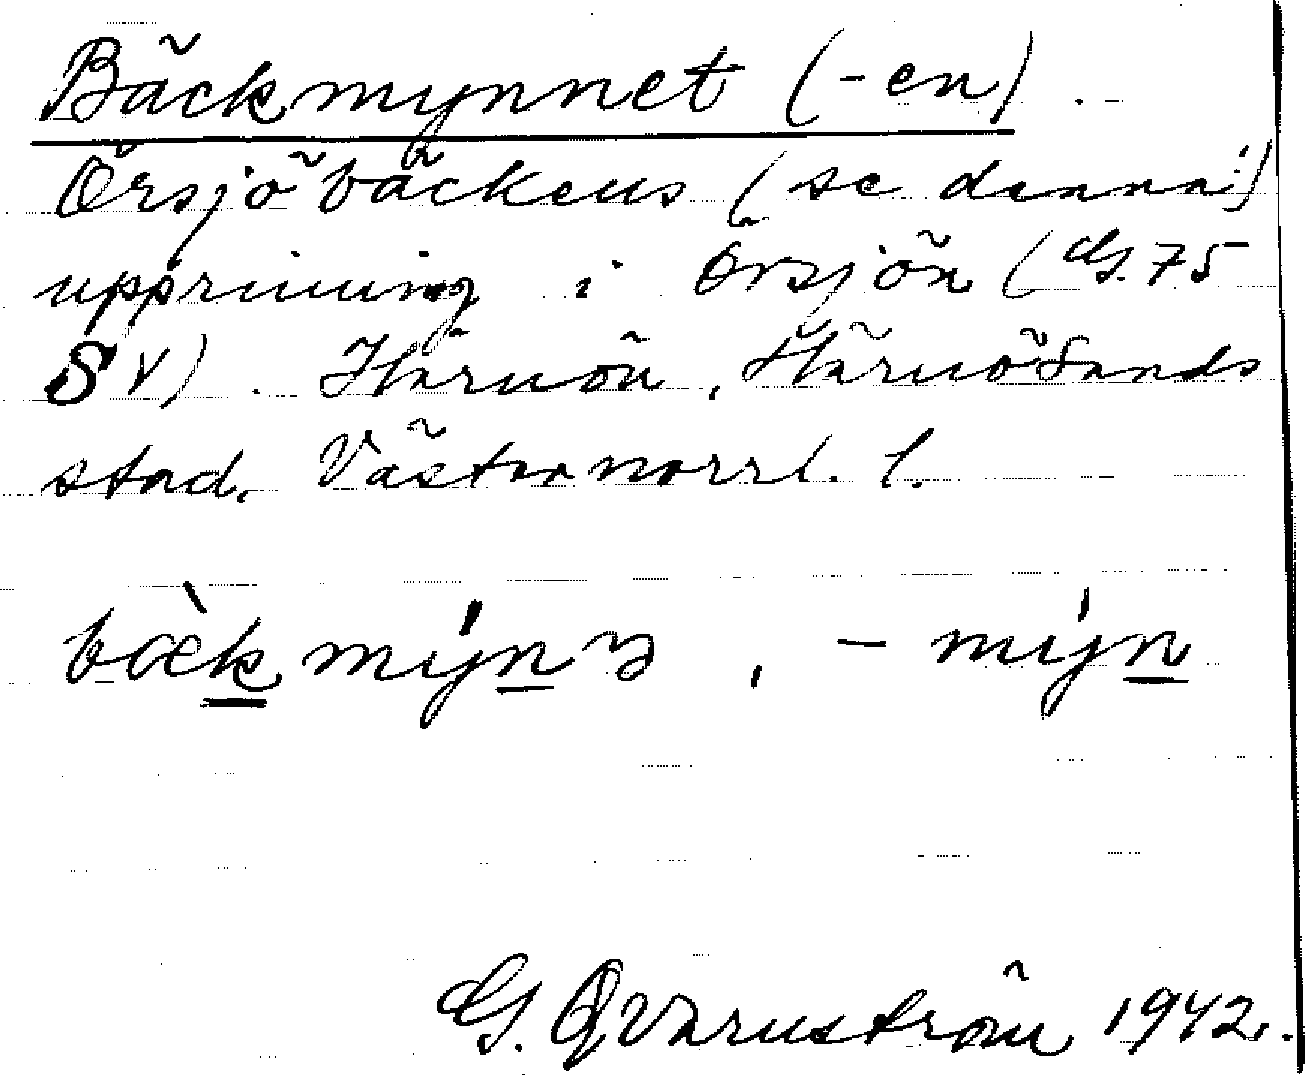 Bäckmynnet (-en).
Örsjöbäckens (se denna!)
upprinning i Örsjön (G. 75
SV). Härnön, Härnösands
stad, Västernorrl. l.
bæ̀kmýnə, -mýn
G. Qvarnström 1942.